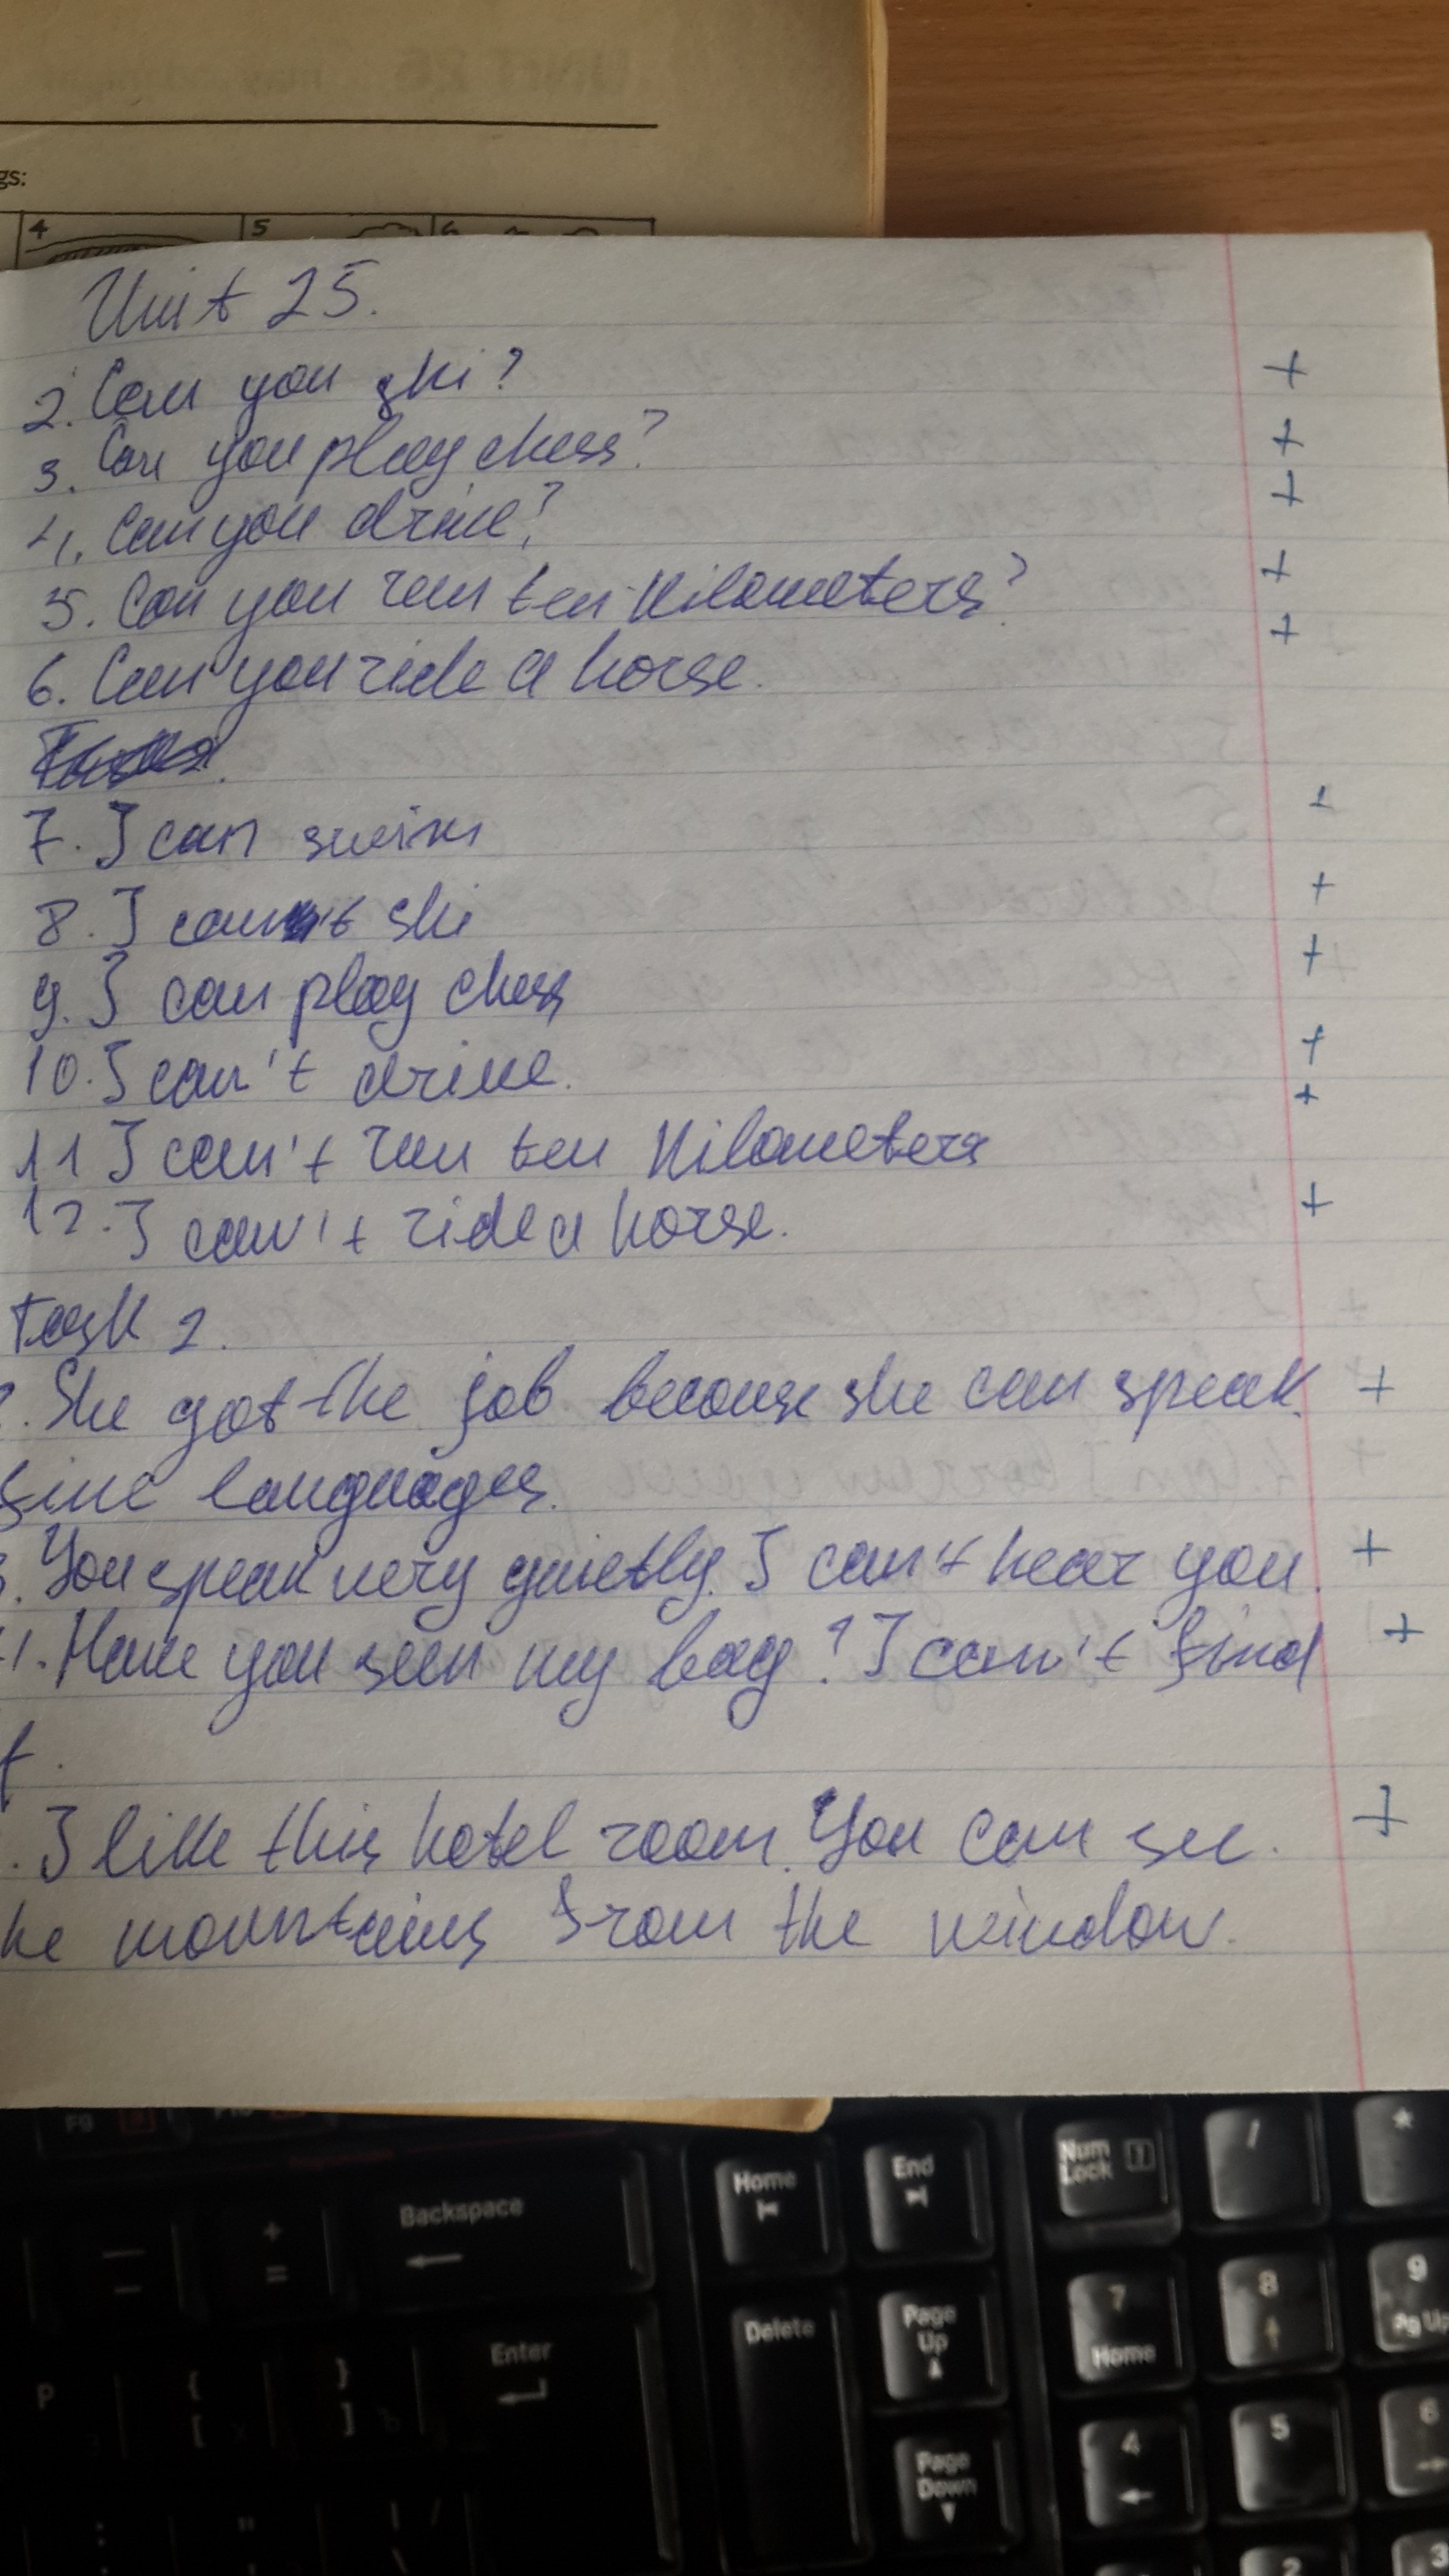 gs:
4 5 6
Unit 25.
2. Can you ski? +
3. Can you play chess? +
4. Can you drive? +
5. Can you run ten kilometers? +
6. Can you ride a horse. +
7. I can swim +
8. I can't ski +
9. I can play chess +
10. I can't drive. +
11 I can't run ten kilometers +
12. I can't ride a horse. +
Task 2.
. She got the job because she can speak +
five languages.
3. You speak very quietly. I can't hear you. +
4. Have you seen my bag? I can't find +
t.
. I like this hotel room. You can see. +
he mountains from the window.
F9
Backspace Home End Num Lock / *
— + =
Delete Page Up 7 Home 8 9 Pg Up
P { [ } ] Enter
Page Down 4 5 6
2 3